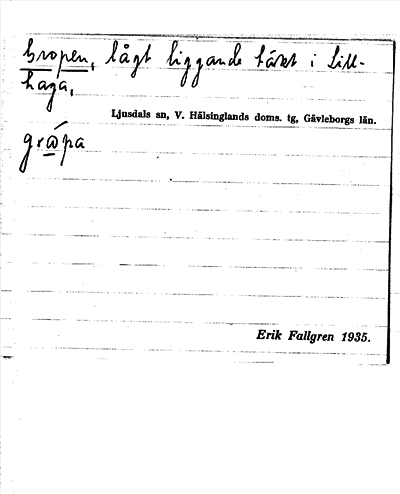 Gropen, lågt liggande täkt i Lill-
haga,
Ljusdals sn, V. Hälsinglands doms. tg, Gävleborgs län.
Erik Fallgren 1935.